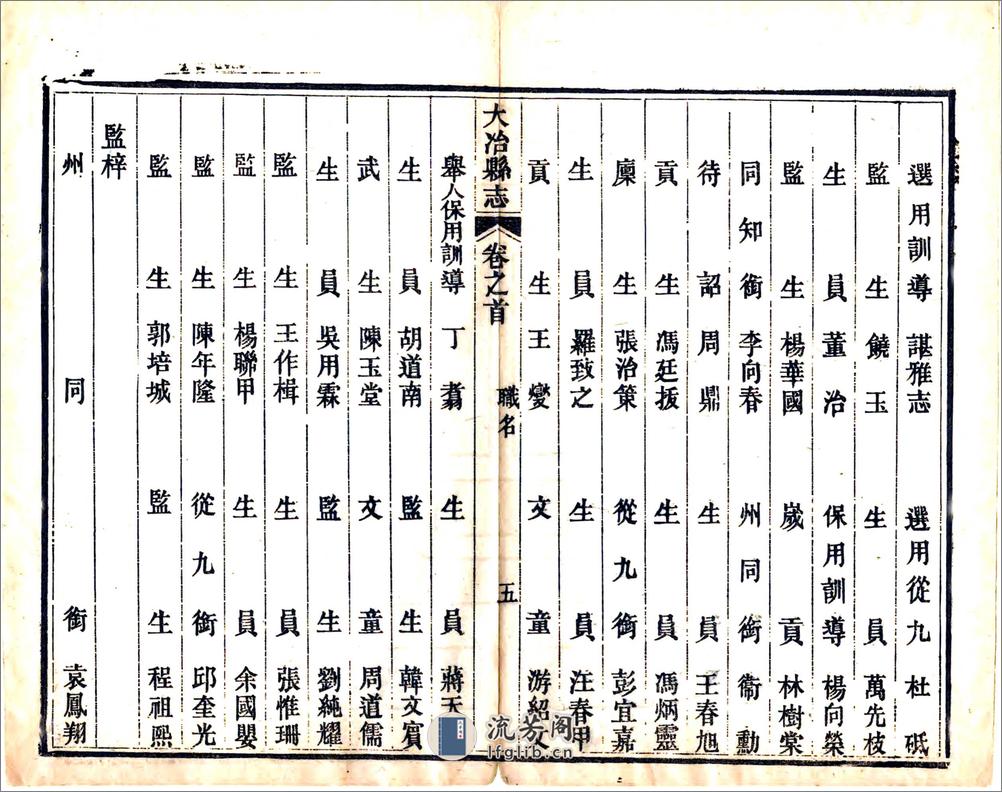 選用訓導 諶雅志 選用從九 杜砥
監生 饒玉 生員 萬先枝
生員 董治 保用訓導 楊向榮
監生 楊華國 歲貢 林樹棠
同知銜 李向春 州同銜 衞勳
待詔 周鼎 生員 王春旭
貢生 馮廷扳 生員 馮炳靈
廩生 張治策 從九銜 彭宜嘉
生員 羅致之 生員 汪春甲
貢生 王燮 文童 游紹文
大冶縣志 卷之首 職名 五
舉人保用訓導 丁翥 生員 蔣天
生員 胡道南 監生 韓文賓
武生 陳玉堂 文童 周道儒
生員 吳用霖 監生 劉純耀
監生 王作楫 生員 張惟珊
監生 楊聯甲 生員 余國嬰
監生 陳年隆 從九銜 邱奎光
監生 郭培城 監生 程祖熙
監梓
州同銜 袁鳳翔
流芳阁
lfglib.cn